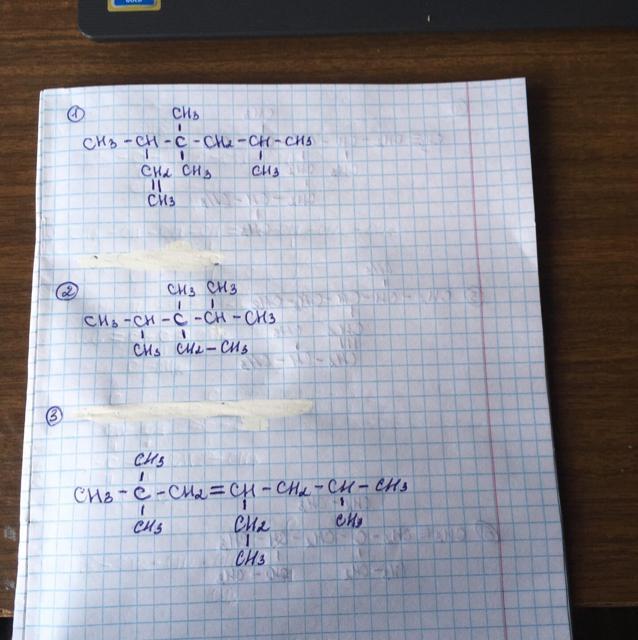 1
CH3
CH3 - CH - C - CH2 - CH - CH3
CH2 CH3 CH3
CH3
2
CH3 CH3
CH3 - CH - C - CH - CH3
CH3 CH2 - CH3
3
CH3
CH3 - C - CH2 = CH - CH2 - CH - CH3
CH3 CH2 CH3
CH3